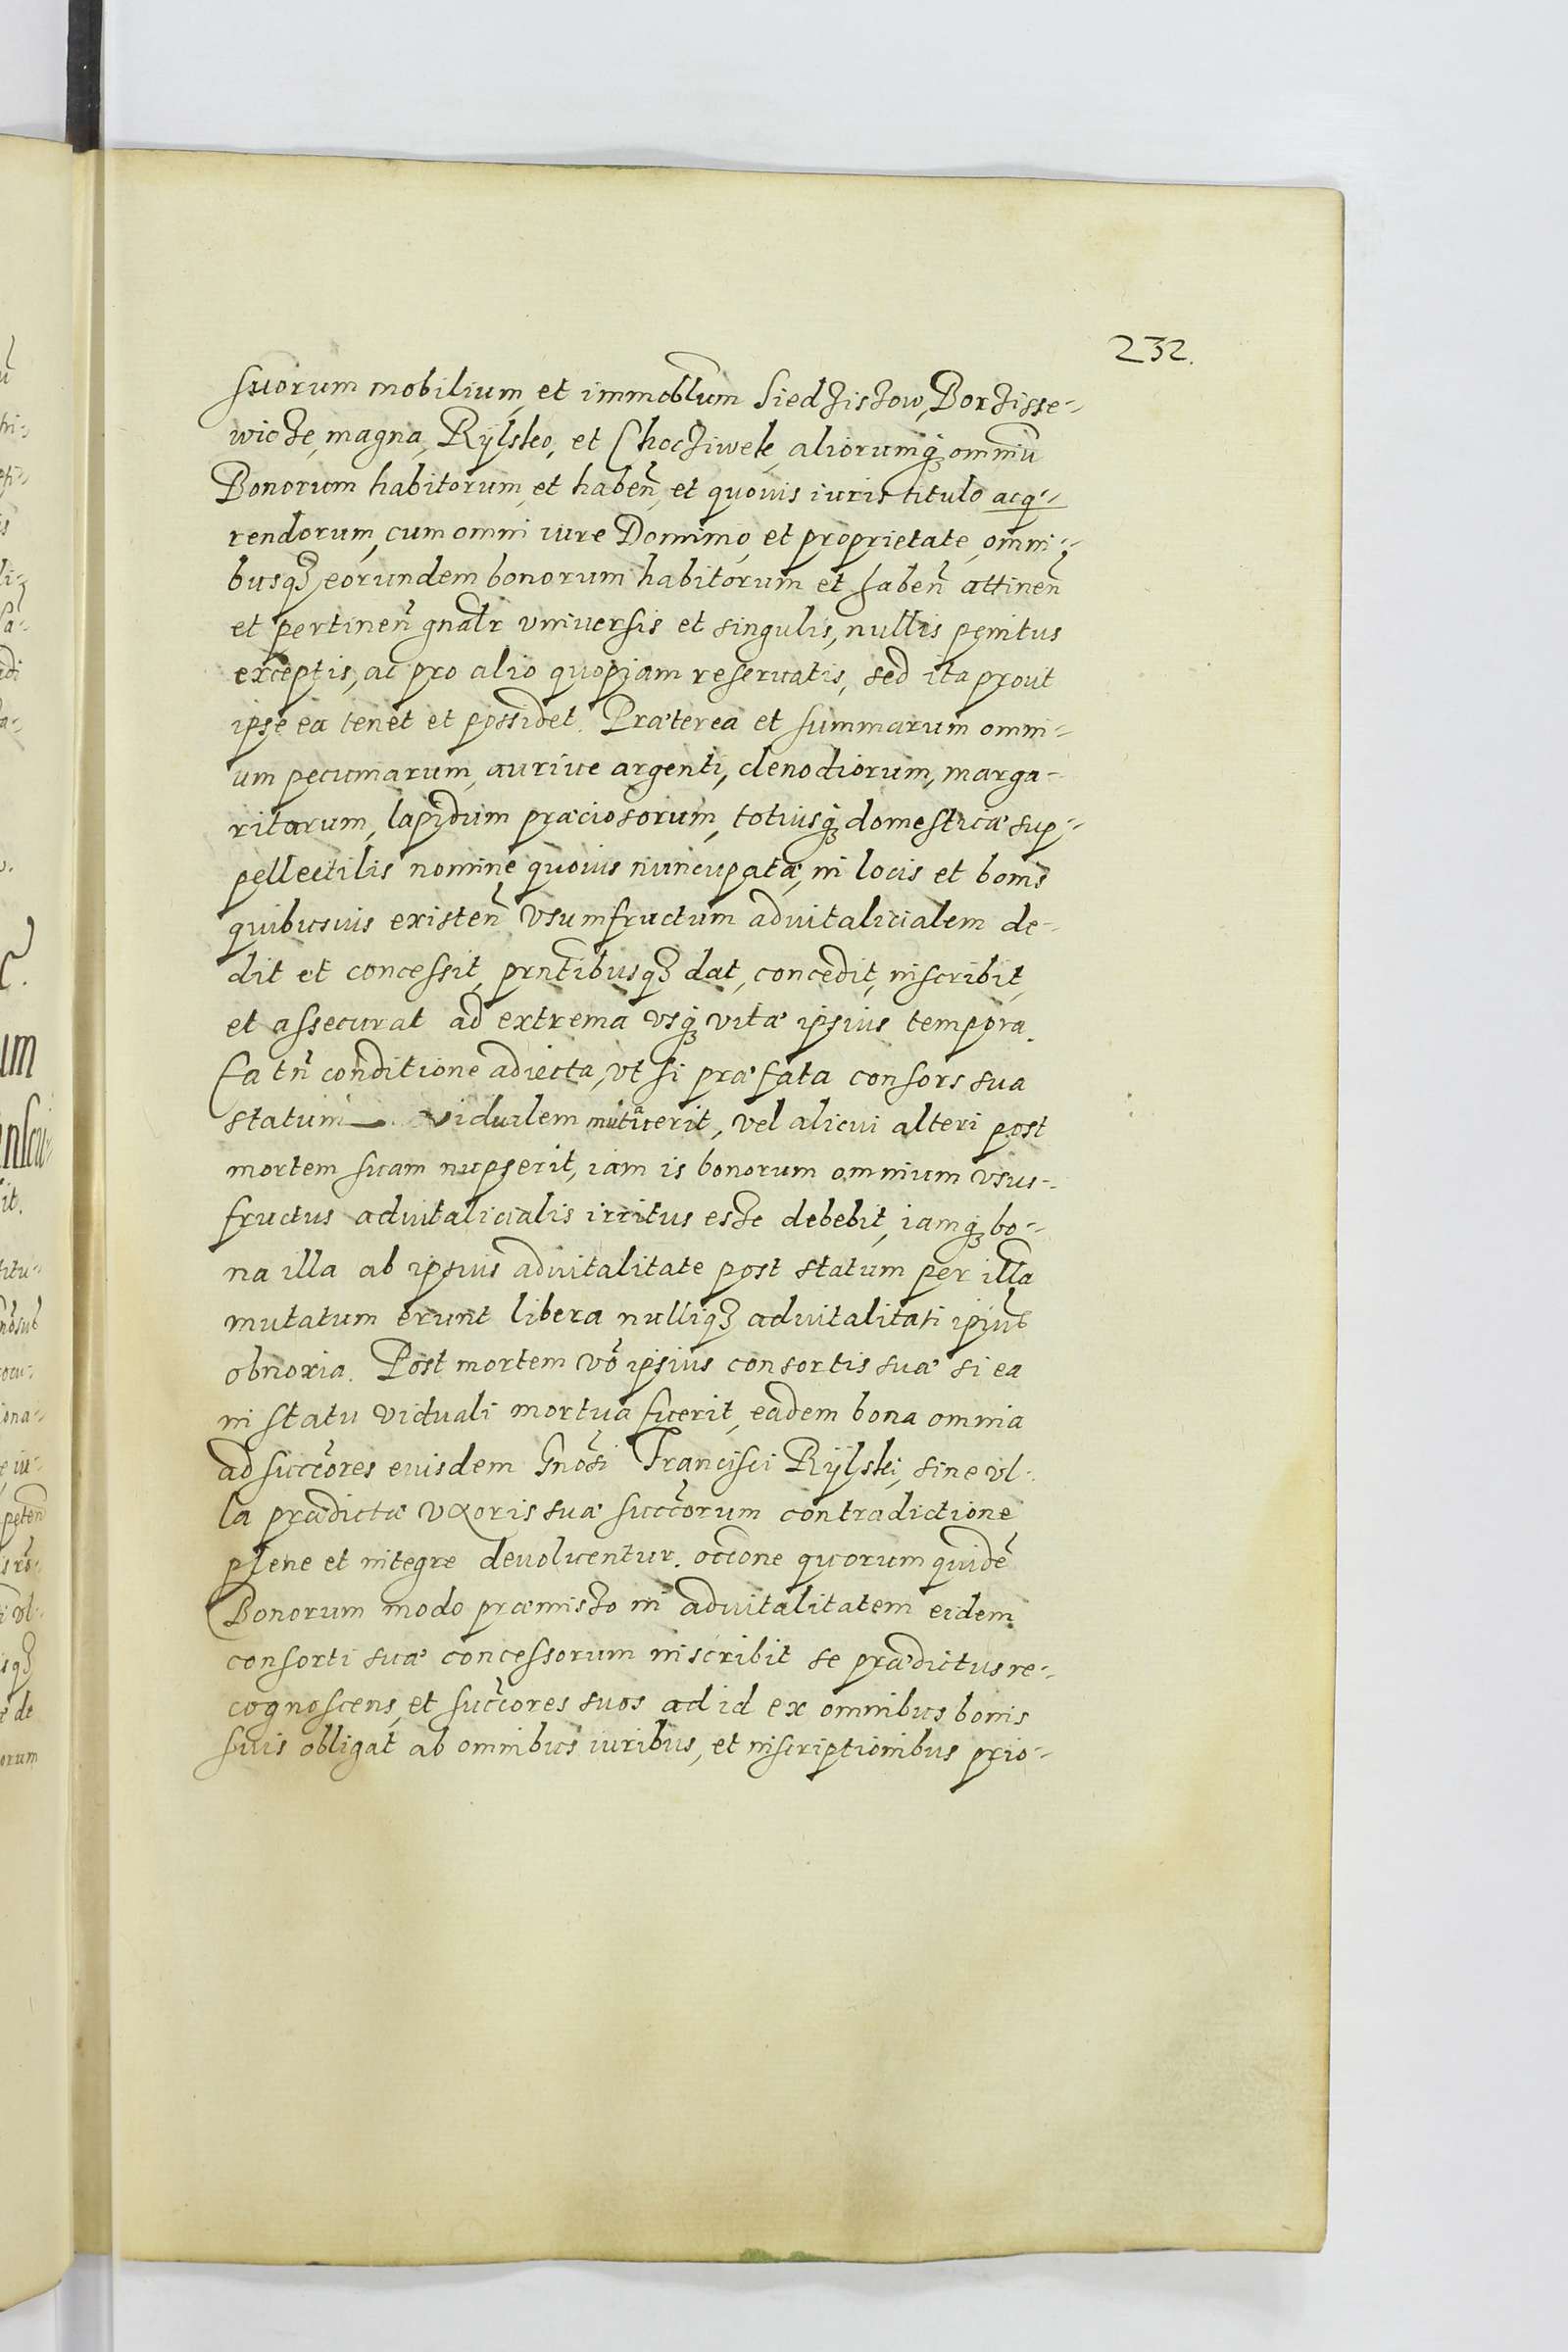 232.
suorum mobilium, et immobĺlium Siedzistow, Borzisse-
wicze, magna, Rÿlsko, et Chocziwek, aliorumq́ȝ omniū
Bonorum habitorum, et habeñ, et quouis iuris titulo acq̇-
rendorum, cum omni iure Dominio, et proprietate, omni-
busqȝ eorundem bonorum habitorum et habeñ attineñ
et pertineñ gnalr vniuersis et singulis, nullis penitus
exceptis, ac pro alio quopiam reseruatis, sed ita prout
ipse ea tenet et possidet. Præterea et summarum omni-
um pecuniarum, auriue argenti, clenodiorum, marga-
ritarum, lapidum præciosorum, totiusq́ȝ domesticæ sup-
pellectilis nomine quouis nuncupatæ, in locis et bonis
quibusuis existeñ vsumfructum aduitalicialem de-
dit et concessit, prntibusqȝ dat, concedit, inscribit,
et assecurat ad extrema vsq́ȝ vitæ ipsius tempora.
Ea tñ conditione adiecta, vt si præfata consors sua
statum vidualem mutauerit, vel alicui alteri post
mortem suam nupserit, iam is bonorum omnium vsus-
fructus aduitalicialis irritus esse debebit, iamq́ȝ bo-
na illa ab ipsius aduitalitate post statum per illã
mutatum erunt libera nulliqȝ aduitalitati ipsius
obnoxia. Post mortem vō ipsius consortis suæ si ea
in statu viduali mortua fuerit, eadem bona omnia
ad succōres euisdem Gnōsi Francisci Rÿlski, sine vl-
la prædictæ vxoris suæ succōrum contradictione
plene et integre deuoluentur. occōne quorum quidē
Bonorum modo præmisso in aduitalitatem eidem
consorti suæ concessorum inscribit se prædictus re-
cognoscens, et succōres suos ad id ex omnibus bonis
suis obligat ab omnibus iuribus, et inscriptionibus prio-